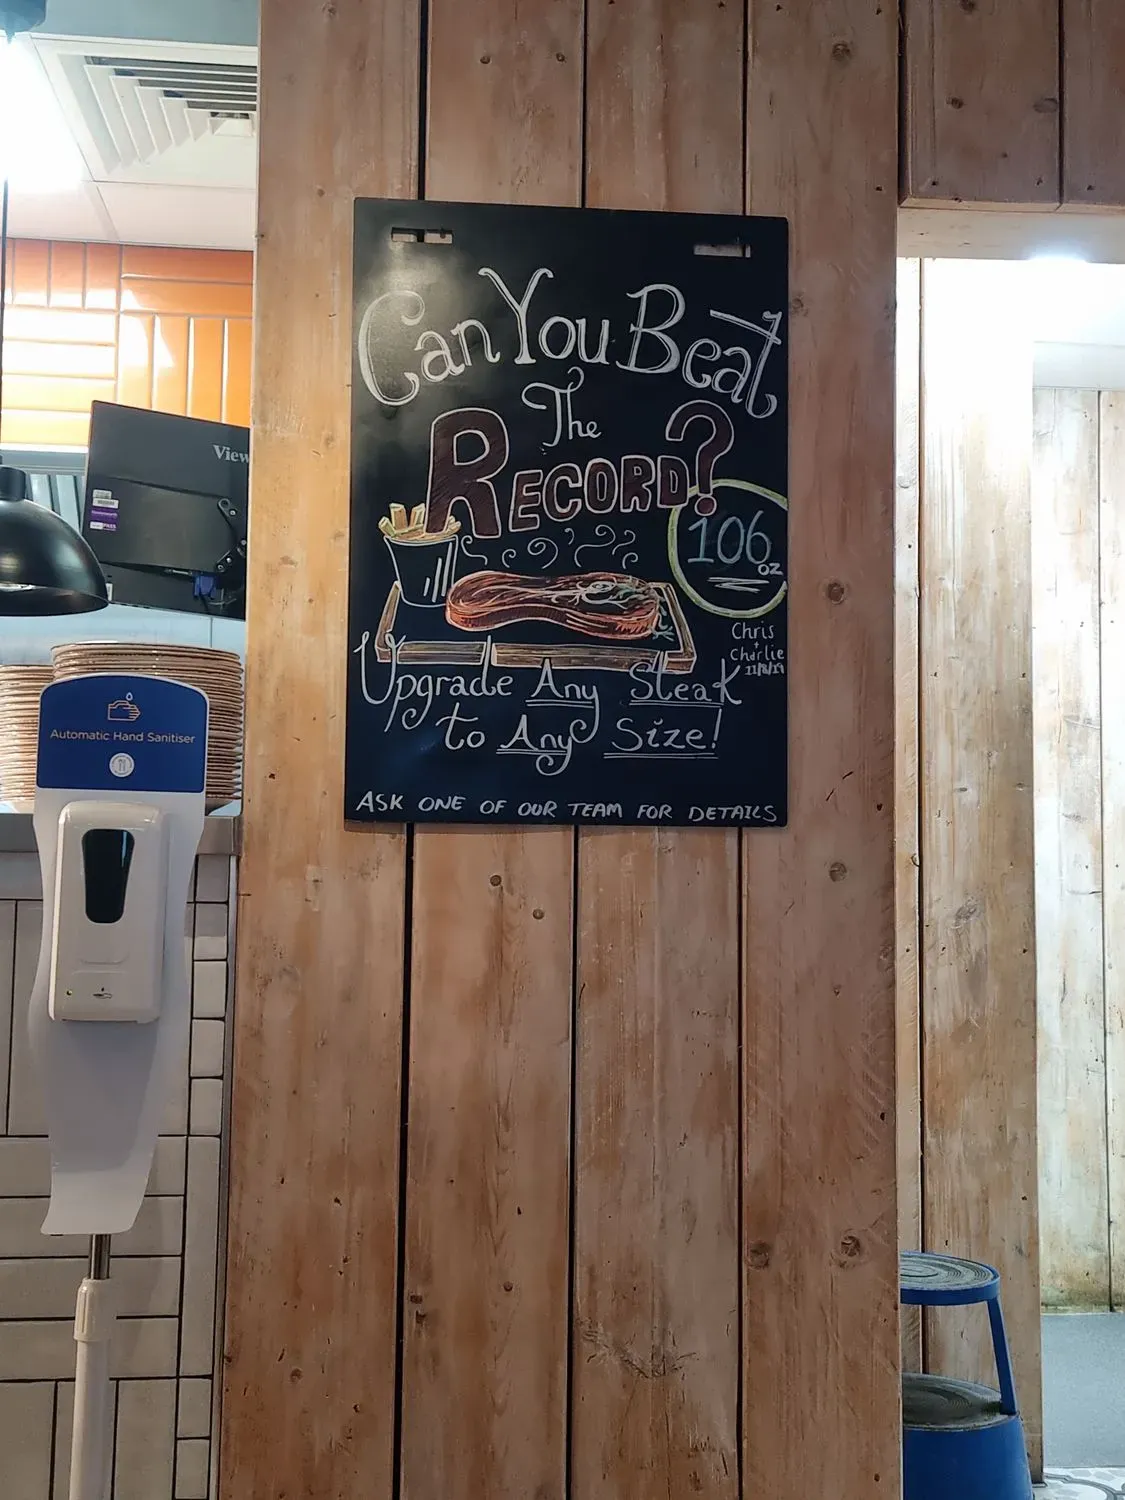 Can You Beat
The
RECORD?
106
oz
Chris
+
Charlie
Upgrade Any Steak
to Any Size!
ASK ONE OF OUR TEAM FOR DETAILS
View
Automatic Hand Sanitiser